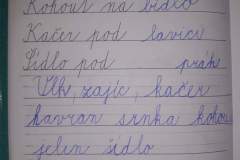 Kohout na bidlo
Kačer pod lavici
Šídlo pod práh
Vlk, zajíc, kačer
havran srnka kohou
jelen šídlo